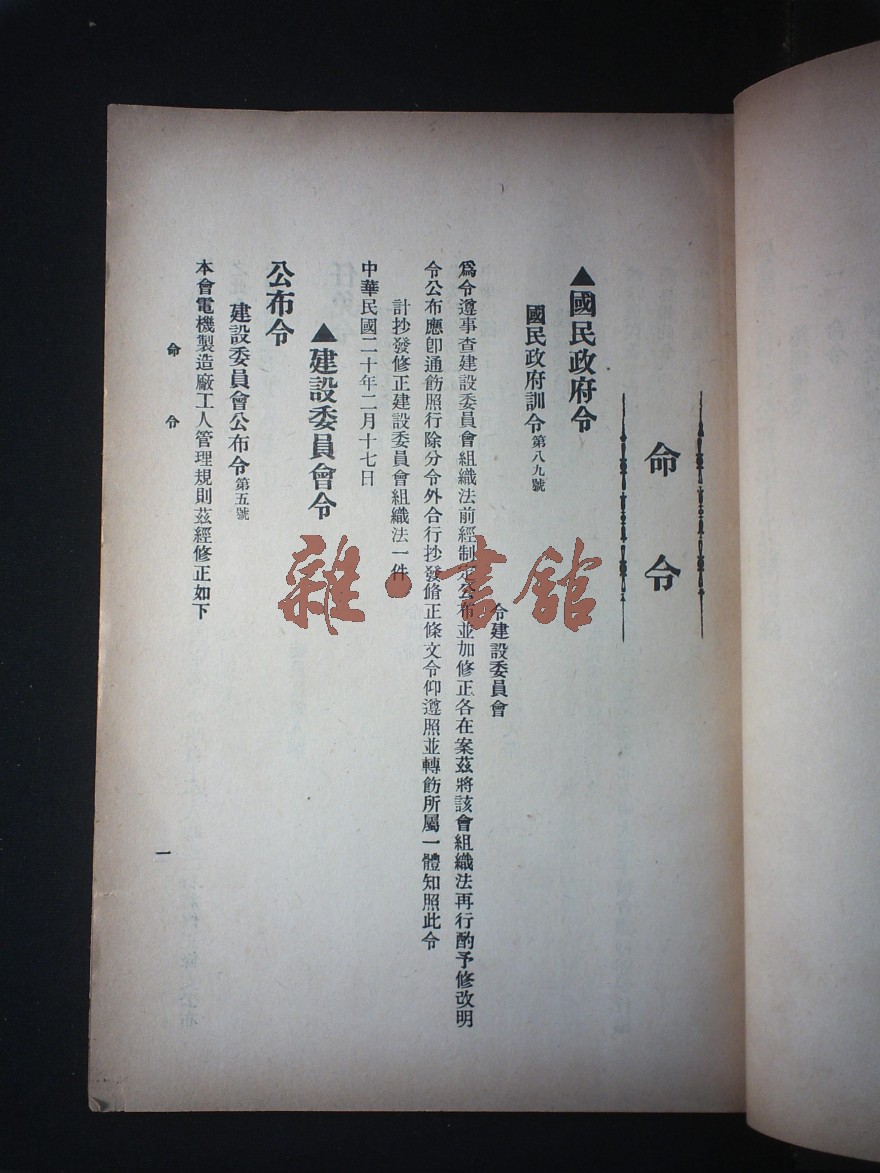 命令
▲國民政府令
國民政府訓令第八九號
令建設委員會
爲令遵事查建設委員會組織法前經制定公布並加修正各在案茲將該會組織法再行酌予修改明
令公布應卽通飭照行除分令外合行抄發脩正條文令仰遵照並轉飭所屬一體知照此令
計抄發修正建設委員會組織法一件
中華民國二十年二月十七日
▲建設委員會令
公布令
建設委員會公布令第五號
本會電機製造廠工人管理規則茲經修正如下
命令
一
雜·書館